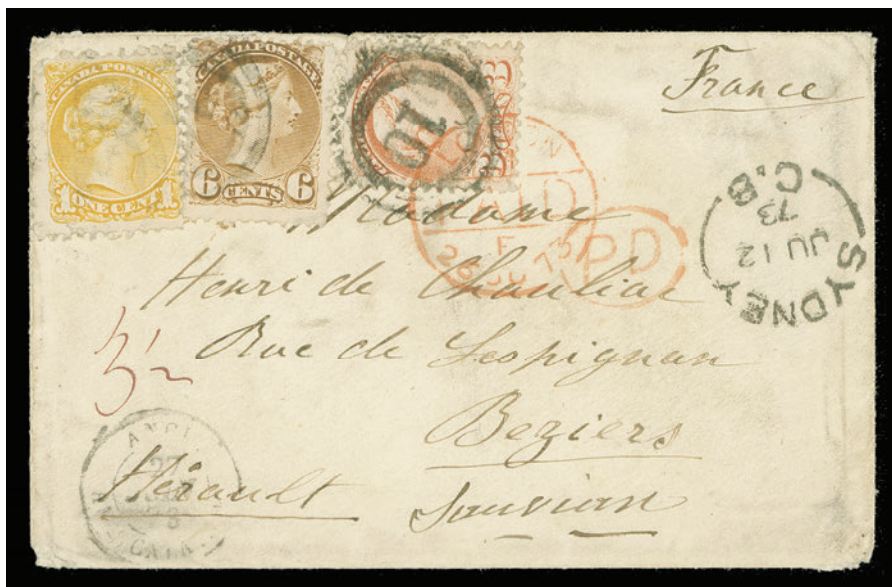 France
CANADA POSTAGE
1 ONE CENT 1
CANADA POSTAGE
6 CENTS 6
3
10
PAID
PD
SYDNEY
JU 12
73
C.B
Madame
Henri de Chauliac
Rue de Lespignan
Beziers
Hérault
Sauvian
3
ANGL
27
CALAIS